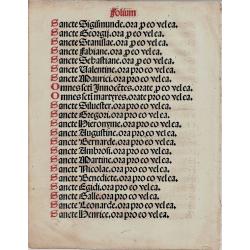 Folium
Sancte Sigismunde. ora p eo vel ea.
Sancte Georgij. ora p eo vel ea.
Sancte Stanislae. ora p eo vel ea.
Sancte Fabiane. ora p eo vel ea.
Sancte Sebastiane. ora p eo vel ea.
Sancte Valentine. ora pro eo vel ea.
Sancte Maurici. ora pro eo vel ea.
Omnes scti Innocētes. orate p eo vel ea.
Omnes scti martyres. orate pro eo vel ea.
Sancte Siluester. ora pro eo vel ea.
Sancte Gregori. ora pro eo vel ea.
Sancte Hieronyme. ora pro eo vel ea.
Sancte Augustine. ora pro eo vel ea.
Sancte Bernarde. ora pro eo vel ea.
Sancte Ambrosi. ora pro eo vel ea.
Sancte Martine. ora pro eo vel ea.
Sancte Nicolae. ora pro eo vel ea.
Sancte Benedicte. ora pro eo vel ea.
Sancte Egidi. ora pro eo vel ea.
Sancte Galle. ora pro eo vel ea.
Sancte Leonarde. ora pro eo vel ea.
Sancte Henrice. ora pro eo vel ea.